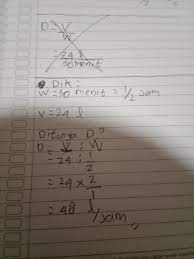 D = V
W
= 24 l
30 menit
Dik:
W = 30 menit = 1/2 jam
V = 24 l
Ditanya D?
D = V : W
= 24 : 1/2
= 24 x 2/1
= 48 l/jam